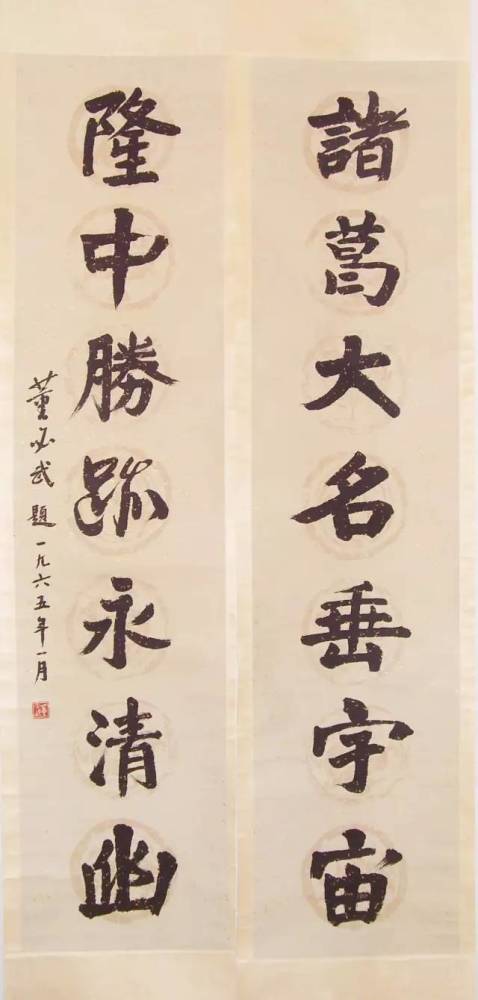 諸葛大名垂宇宙
隆中勝跡永清幽
董必武題 一九六五年一月